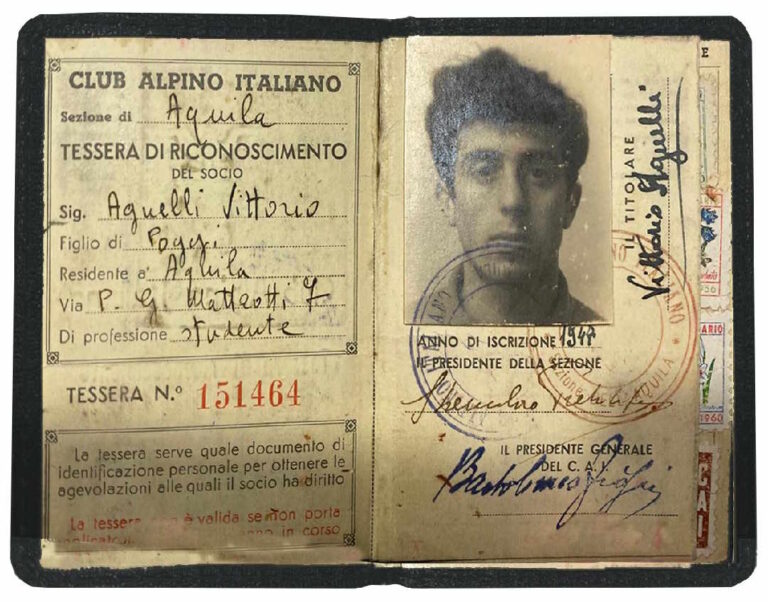 CLUB ALPINO ITALIANO
Sezione di Aquila
TESSERA DI RICONOSCIMENTO
DEL SOCIO
Sig. Agnelli Vittorio
Figlio di Poggi
Residente a' Aquila
Via P. G. Matteotti 7
Di professione studente
TESSERA N.º 151464
La tessera serve quale documento di
identificazione personale per ottenere le
agevolazioni alle quali il socio ha diritto
La tessera non è valida se non porta
anno in corso
IL TITOLARE
Vittorio Agnelli
ANNO DI ISCRIZIONE 1947
IL PRESIDENTE DELLA SEZIONE
IL PRESIDENTE GENERALE
DEL C. A. I.
Bartolomeo Figari
Sezione
AQUILA
E
ARIO
1960
CAI